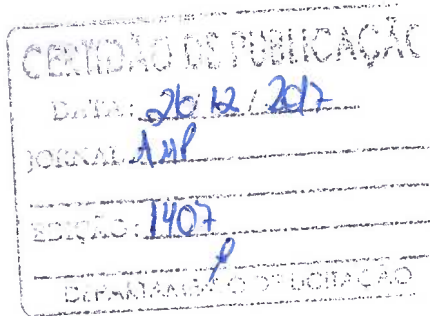 CERTIDÃO DE PUBLICAÇÃO
DATA: 26/12/2017
JORNAL: AMP
EDIÇÃO: 1407
DEPARTAMENTO DE LICITAÇÃO